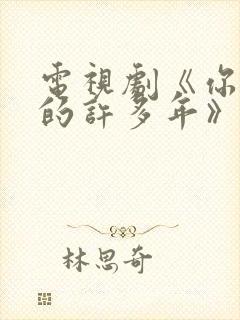 電視劇《你
的許多年》
林思奇